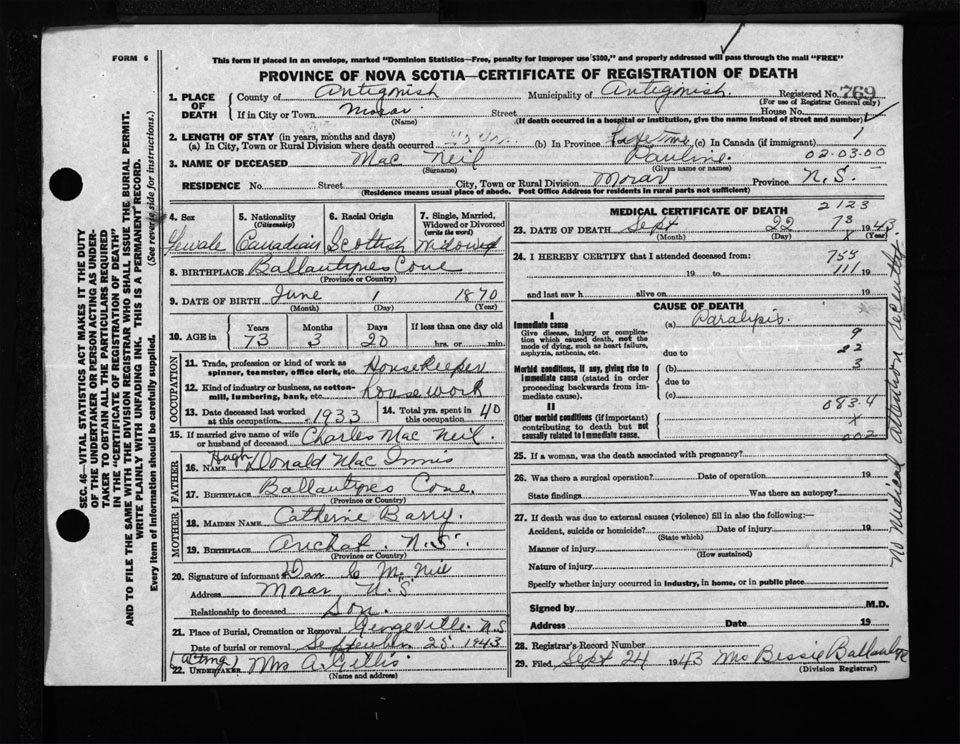 FORM 6
This form if placed in an envelope, marked "Dominion Statistics—Free, penalty for improper use $300," and properly addressed will pass through the mail "FREE"
PROVINCE OF NOVA SCOTIA—CERTIFICATE OF REGISTRATION OF DEATH
1. PLACE OF DEATH County of Antigonish Municipality of Antigonish. Registered No. 769
(For use of Registrar General only)
If in City or Town Morar. (Name) Street House No.
(If death occurred in a hospital or institution, give the name instead of street and number)
2. LENGTH OF STAY (in years, months and days)
(a) In City, Town or Rural Division where death occurred (b) In Province Life Time (c) In Canada (if immigrant) 1
3. NAME OF DECEASED Mac Neil (Surname) Pauline. (Given name or names) 02-03-00
RESIDENCE No. Street City, Town or Rural Division Morar Province N.S.
(Residence means usual place of abode. Post Office Address for residents in rural parts not sufficient)
4. Sex Female
5. Nationality (Citizenship) Canadian
6. Racial Origin Scottish
7. Single, Married, Widowed or Divorced (write the word) Widowed
8. BIRTHPLACE Ballantynes Cove (Province or Country)
9. DATE OF BIRTH June (Month) 1 (Day) 1870 (Year)
10. AGE in Years 73 Months 3 Days 20 If less than one day old hrs. or min.
OCCUPATION
11. Trade, profession or kind of work as spinner, teamster, office clerk, etc. Housekeeper
12. Kind of industry or business, as cotton-mill, lumbering, bank, etc. housework
13. Date deceased last worked at this occupation 1933 14. Total yrs. spent in this occupation 40
15. If married give name of wife or husband of deceased Charles Mac Neil.
FATHER
16. NAME Hugh Donald Mac Innis
17. BIRTHPLACE Ballantynes Cove. (Province or Country)
MOTHER
18. MAIDEN NAME Catherine Barry.
19. BIRTHPLACE Arichat. N.S. (Province or Country)
20. Signature of informant Dan C McNeil
Address Morar N.S.
Relationship to deceased Son.
21. Place of Burial, Cremation or Removal Georgeville N.S
Date of burial or removal September 25 1943
(acting)
22. UNDERTAKER Mrs A. Gillis (Name and address)
MEDICAL CERTIFICATE OF DEATH 2123
23. DATE OF DEATH Sept (Month) 22 (Day) 73 1943 (Year)
x
24. I HEREBY CERTIFY that I attended deceased from: 755
19 to 111 19
and last saw h alive on 19
CAUSE OF DEATH x
I
Immediate cause (a) Paralysis.
Give disease, injury or complication which caused death, not the mode of dying, such as heart failure, asphyxia, asthenia, etc. due to 9
22
Morbid conditions, if any, giving rise to immediate cause (stated in order proceeding backwards from immediate cause). (b) 3
due to
(c)
II 083.4
Other morbid conditions (if important) contributing to death but not causally related to immediate cause. x
002
25. If a woman, was the death associated with pregnancy?
26. Was there a surgical operation? Date of operation 19
State findings Was there an autopsy?
27. If death was due to external causes (violence) fill in also the following:—
Accident, suicide or homicide? (State which) Date of injury 19
Manner of injury (How sustained)
Nature of injury
Specify whether injury occurred in industry, in home, or in public place
Signed by M.D.
Address Date 19
28. Registrar's Record Number
29. Filed Sept 24 1943 Mrs Bessie (Division Registrar)
No Medical attention recently.
SEC. 46—VITAL STATISTICS ACT MAKES IT THE DUTY
OF THE UNDERTAKER OR PERSON ACTING AS UNDER-
TAKER TO OBTAIN ALL THE PARTICULARS REQUIRED
IN THE "CERTIFICATE OF REGISTRATION OF DEATH"
AND TO FILE THE SAME WITH THE DIVISION REGISTRAR WHO SHALL ISSUE THE BURIAL PERMIT.
WRITE PLAINLY WITH UNFADING INK. THIS IS A PERMANENT RECORD.
Every item of information should be carefully supplied. (See reverse side for instructions.)